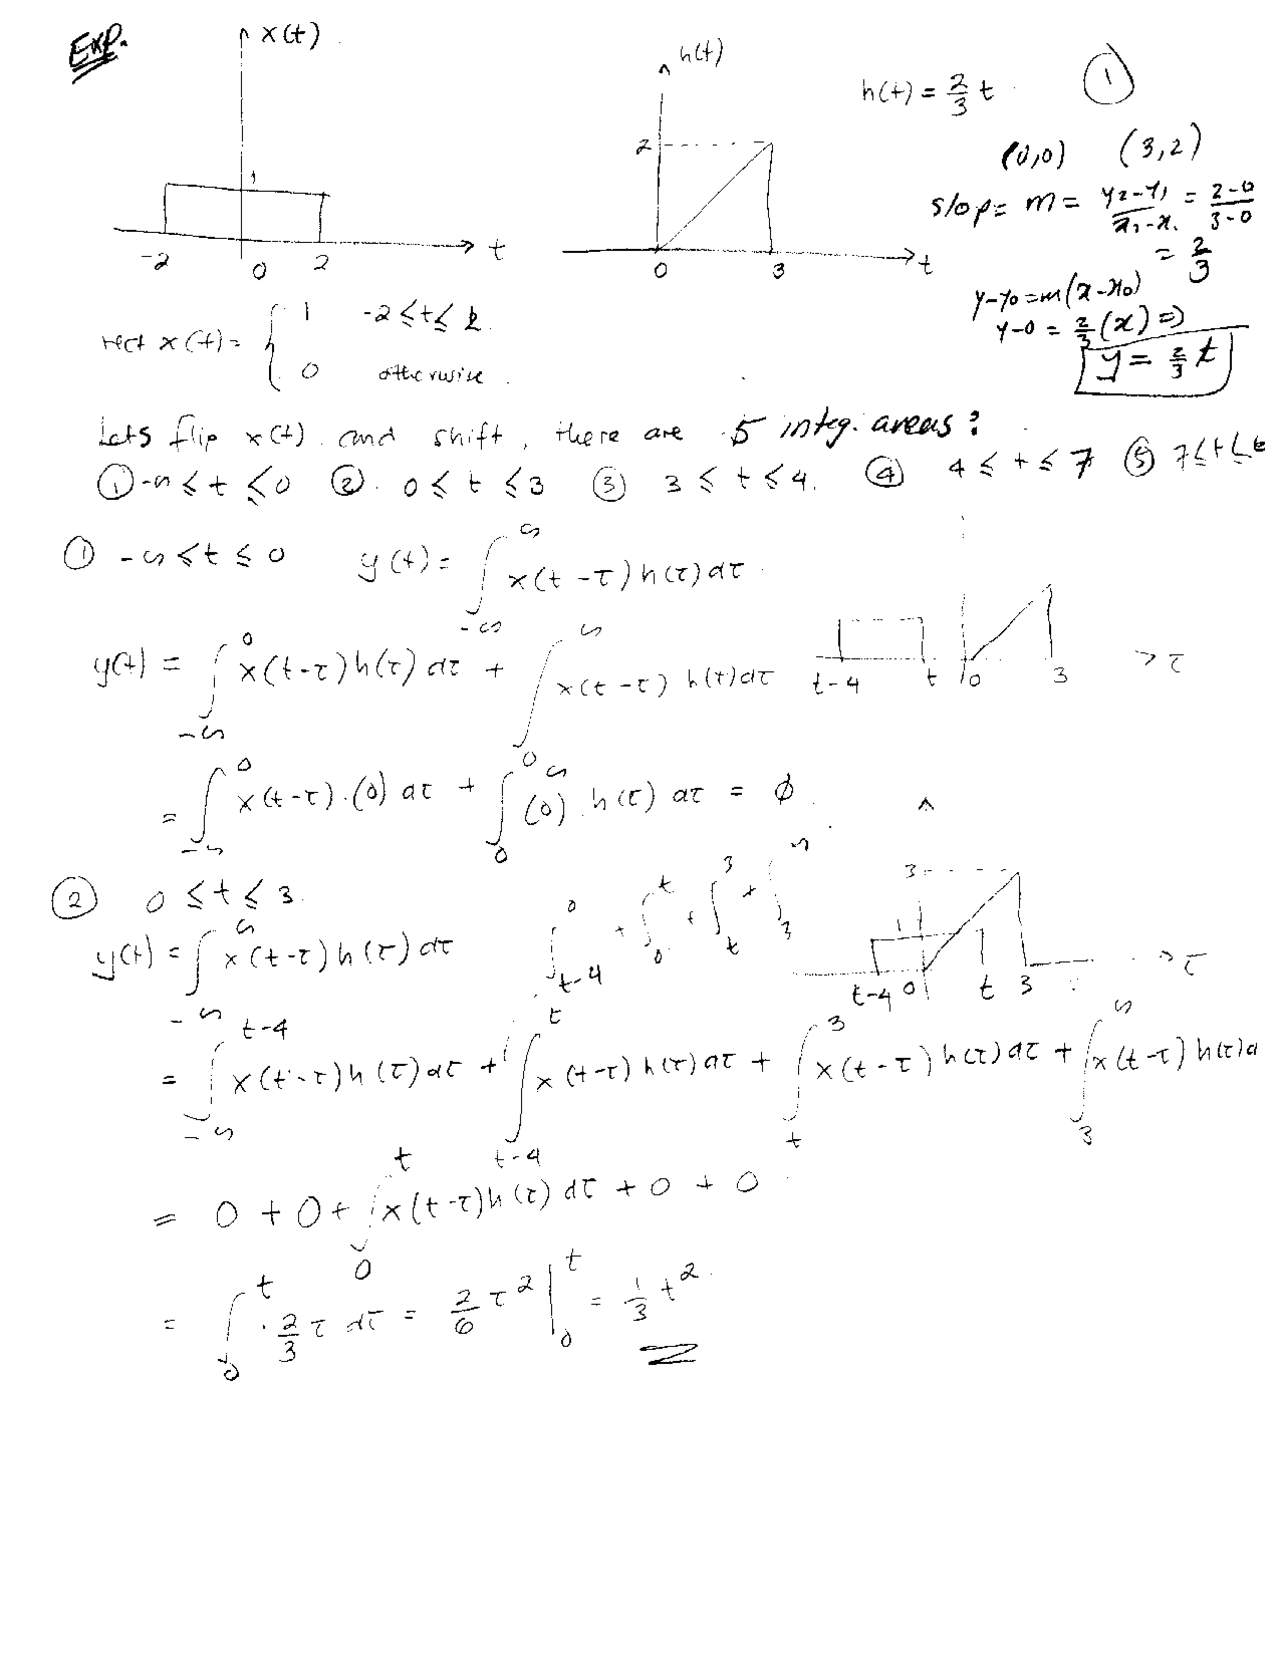 Exp.
x(t)
1
-2 0 2 t
h(t)
2
0 3 t
h(t) = 2/3 t
①
(0,0) (3,2)
slop = m = y2-y1/x2-x1 = 2-0/3-0
= 2/3
y-y0 = m(x-x0)
y-0 = 2/3 (x) ⇒
y = 2/3 t
rect x(t) = { 1 -2 ≤ t ≤ 2
0 otherwise.
Lets flip x(t) and shift, there are 5 integ. areas:
① -∞ ≤ t ≤ 0 ② 0 ≤ t ≤ 3 ③ 3 ≤ t ≤ 4. ④ 4 ≤ t ≤ 7 ⑤ 7 ≤ t ≤
① -∞ ≤ t ≤ 0 y(t) = ∫_{-∞}^{∞} x(t-τ) h(τ) dτ
y(t) = ∫_{-∞}^{0} x(t-τ) h(τ) dτ + ∫_{0}^{∞} x(t-τ) h(τ) dτ
t-4 t 0 3 τ
= ∫_{-∞}^{0} x(t-τ).(0) dτ + ∫_{0}^{∞} (0).h(τ) dτ = ϕ
② 0 ≤ t ≤ 3
∫_{t-4}^{0} + ∫_{0}^{t} + ∫_{t}^{3} + ∫_{3}^{∞}
3
1
t-4 0 t 3 τ
y(t) = ∫_{-∞}^{∞} x(t-τ) h(τ) dτ
= ∫_{-∞}^{t-4} x(t-τ) h(τ) dτ + ∫_{t-4}^{t} x(t-τ) h(τ) dτ + ∫_{t}^{3} x(t-τ) h(τ) dτ + ∫_{3}^{∞} x(t-τ) h(τ) d
= 0 + 0 + ∫_{0}^{t} x(t-τ) h(τ) dτ + 0 + 0
= ∫_{0}^{t} . 2/3 τ dτ = 2/6 τ² |_{0}^{t} = 1/3 t²